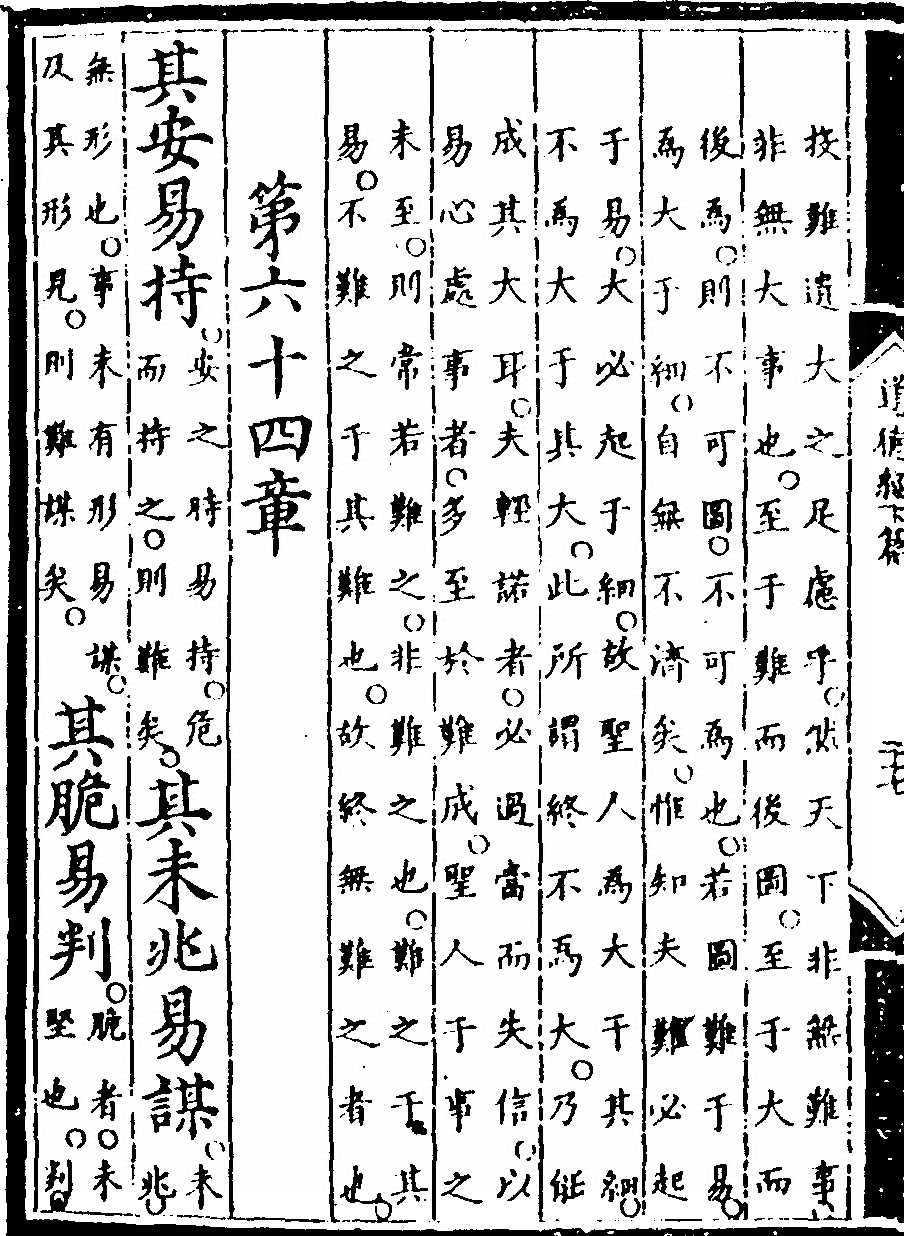 投難遺大之足慮乎。然天下非無難事、
非無大事也。至于難而後圖。至于大而
後為。則不可圖。不可為也。若圖難于易。
為大于細。自無不濟矣。惟知夫難必起
于易。大必起于細。故聖人為大于其細。
不為大于其大。此所謂終不為大。乃能
成其大耳。夫輕諾者。必過當而失信。以
易心處事者。多至於難成。聖人于事之
未至。則常若難之。非難之也。難之于其
易。不難之于其難也。故終無難之者也。
第六十四章
其安易持。安之時易持。危而持之。則難矣。其未兆易謀。未兆。
無形也。事未有形易謀。及其形見。則難謀矣。其脆易判。脆者。未堅也。判。
道德經下篇